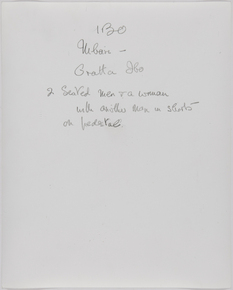 IBO
Mbari -
Oratta Ibo
2 Seated men & a woman
with another man in shorts
on pedestal.